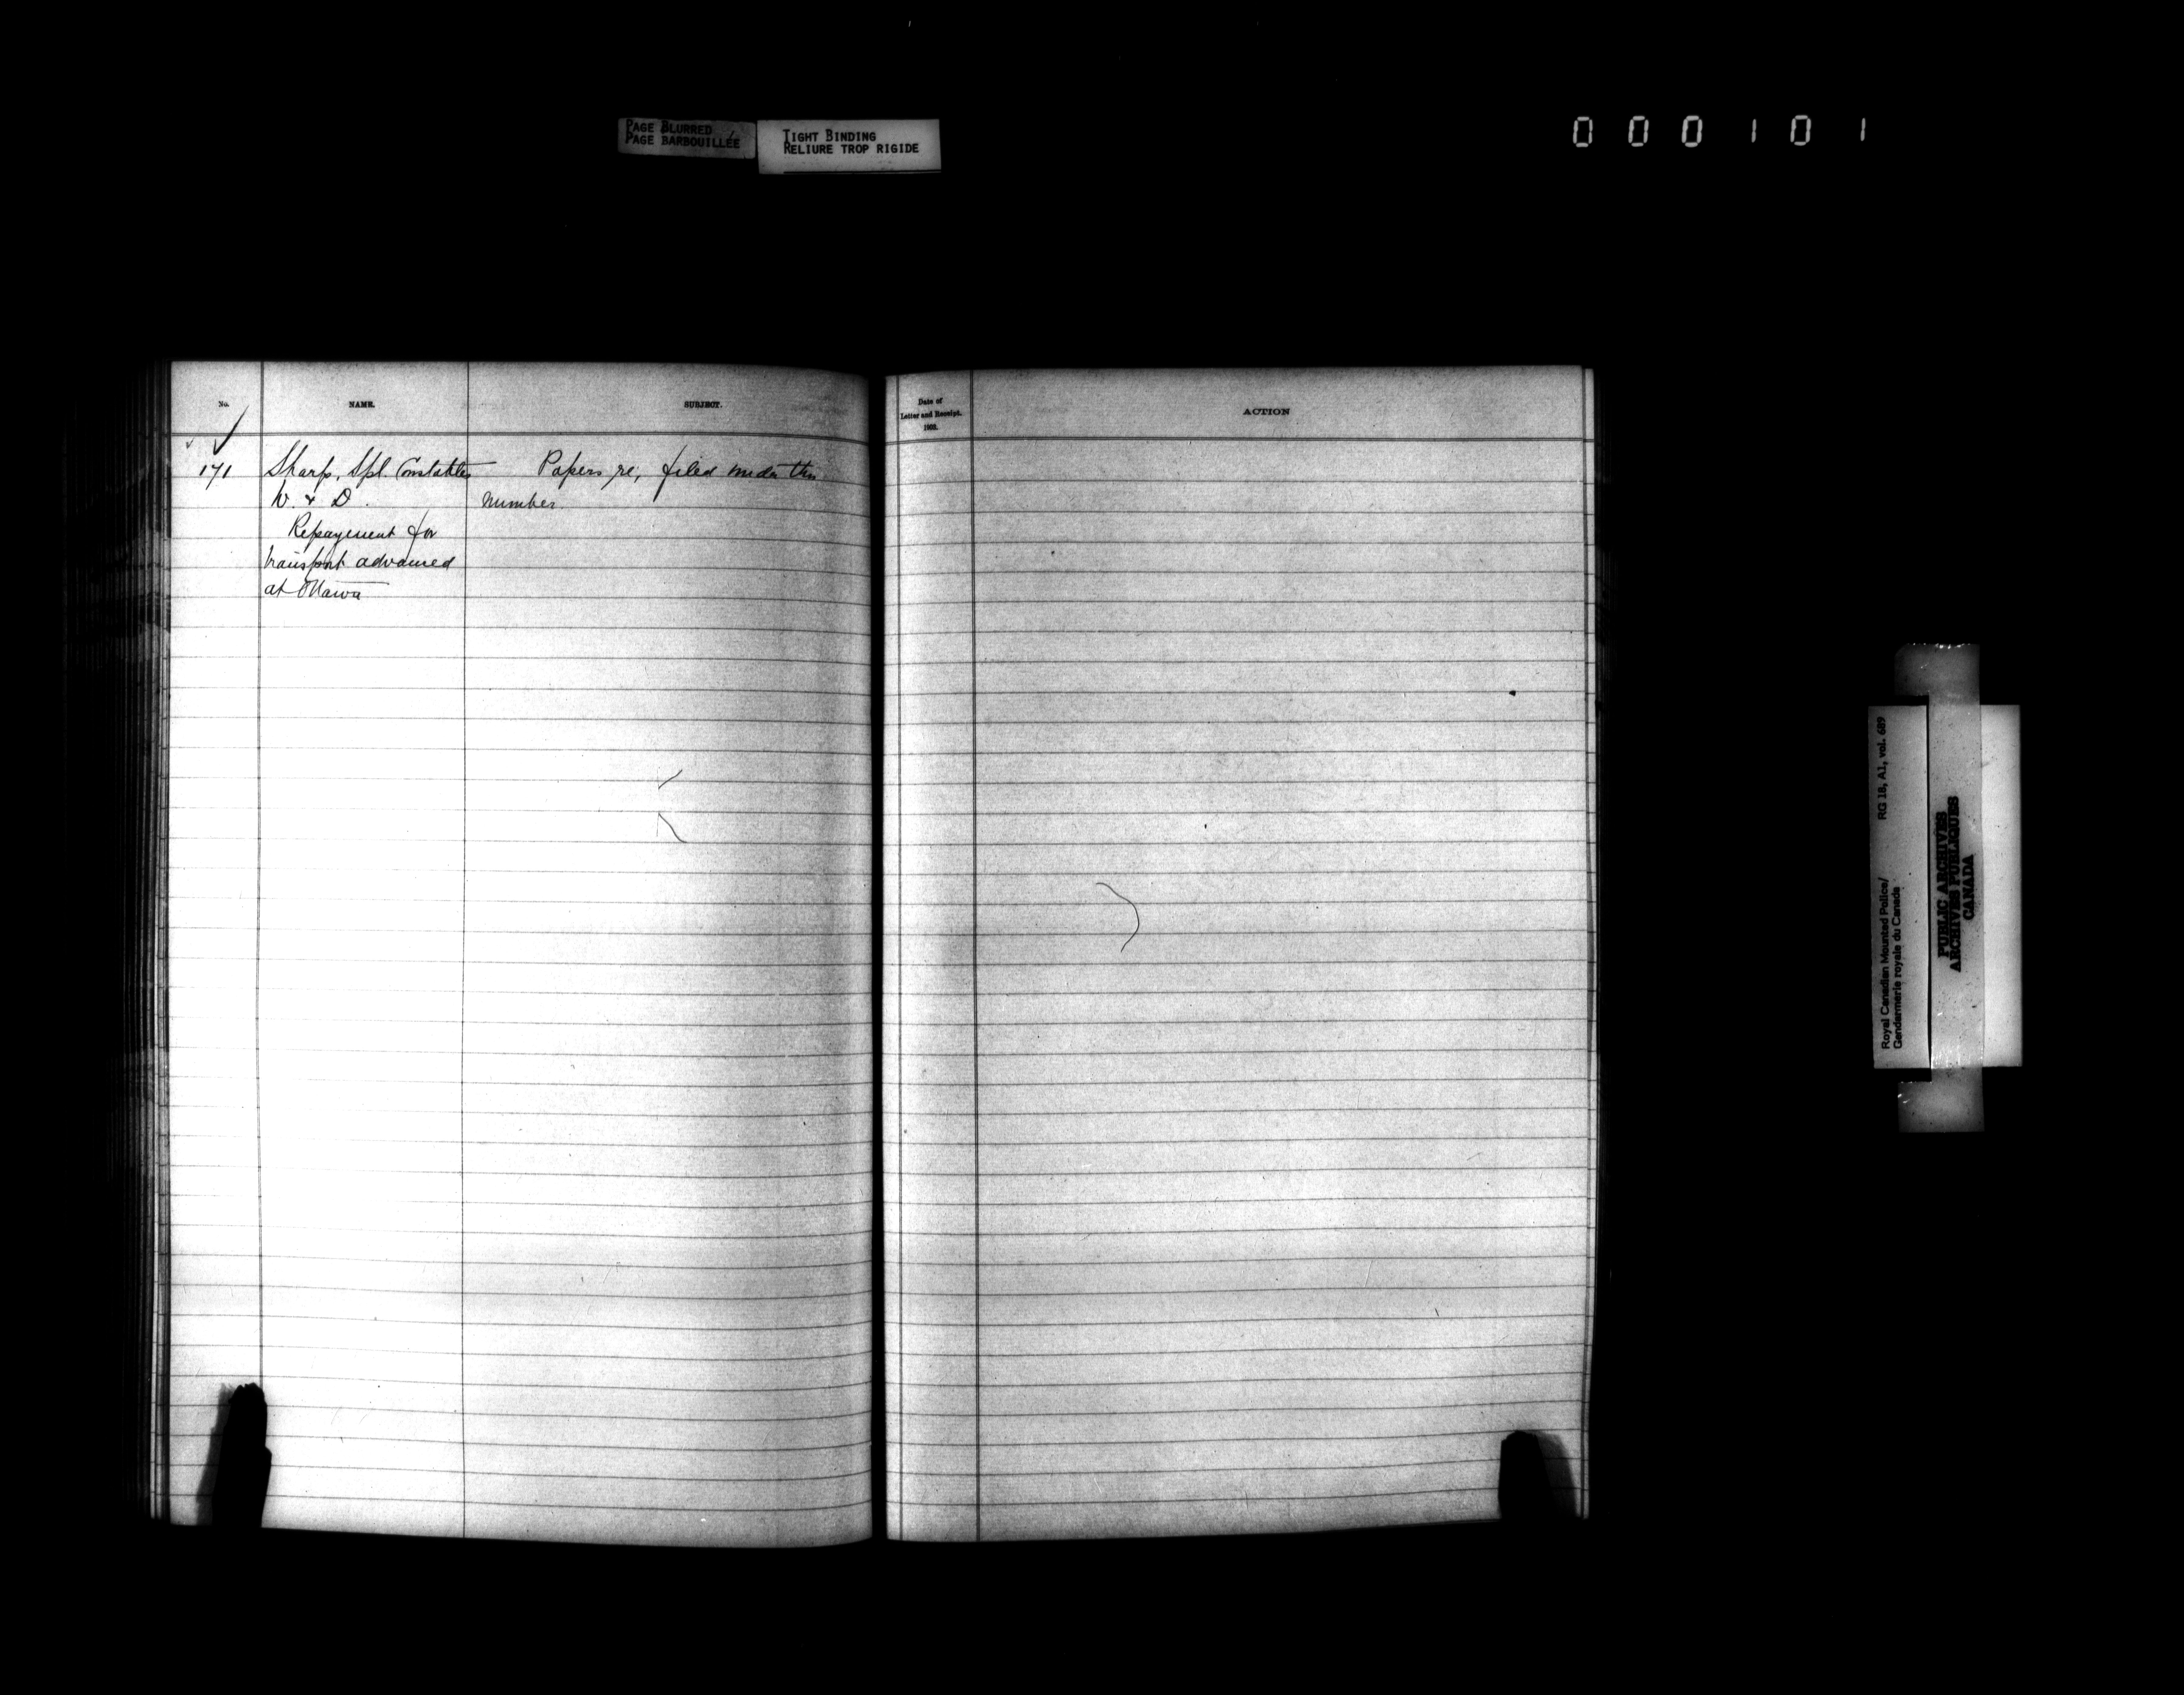 PAGE BLURRED
PAGE BARBOUILLÉE
TIGHT BINDING
RELIURE TROP RIGIDE
000101
No.
NAME.
SUBJECT.
Date of
Letter and Receipt.
1900.
ACTION
171
Sharp, Spl. Constables
W. & D.
Repayment for
transport advanced
at Ottawa
Papers re, filed under this
number.
Royal Canadian Mounted Police/
Gendarmerie royale du Canada
RG 18, A1, vol. 689
PUBLIC ARCHIVES
ARCHIVES PUBLIQUES
CANADA